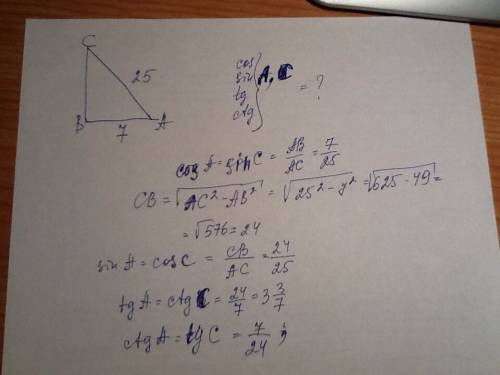 C
25
B 7 A
cos
sin A, C = ?
tg
ctg
cos A = sin C = AB/AC = 7/25
CB = √(AC² - AB²) = √(25² - y²) = √(625 - 49) =
= √576 = 24
sin A = cos C = CB/AC = 24/25
tg A = ctg C = 24/7 = 3 3/7
ctg A = tg C = 7/24 ;